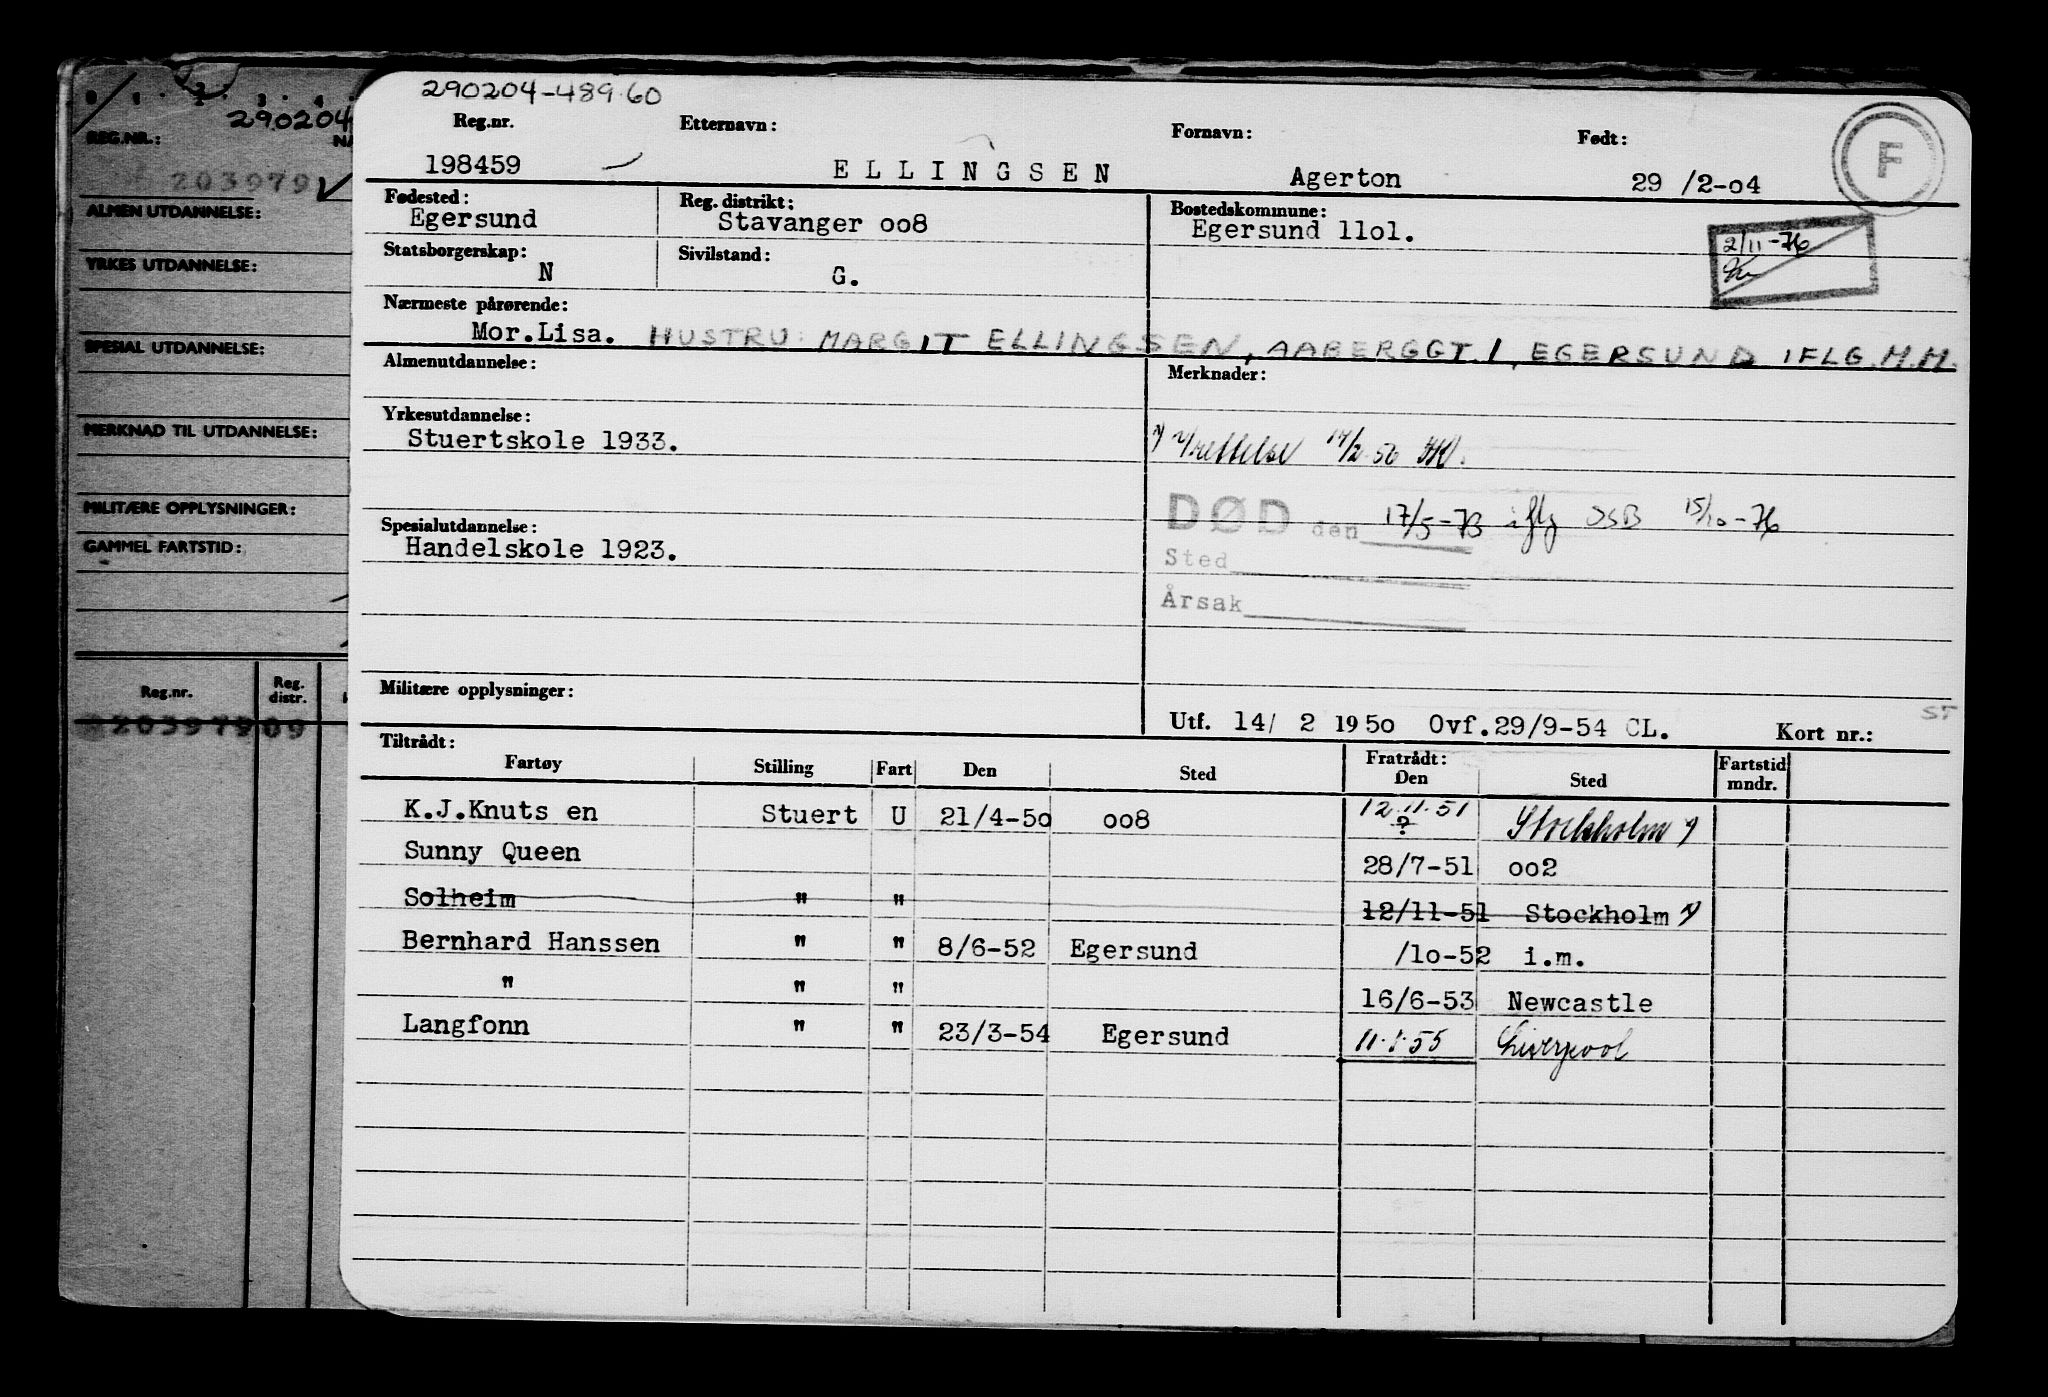 290204-489.60
Reg.nr. Etternavn: Fornavn: Født:
198459 ELLINGSEN Agerton 29 /2-04
F
Fødested: Reg. distrikt: Bostedskommune:
Egersund Stavanger oo8 Egersund 11o1.
Statsborgerskap: Sivilstand:
N G.
2/11-76
Nærmeste pårørende:
Mor.Lisa. HUSTRU: MARGIT ELLINGSEN, AABERGGT. 1, EGERSUND IFLG. M.M.
Almenutdannelse: Merknader:
Yrkesutdannelse:
Stuertskole 1933.
rettelse 14/2 50
DØD den 17/5-73 iflg 15/10-76
Sted
Årsak
Spesialutdannelse:
Handelskole 1923.
Militære opplysninger:
Utf. 14/ 2 1950 Ovf.29/9-54 CL. Kort nr.:
ST
Tiltrådt: Fratrådt: Fartstid
Fartøy Stilling Fart Den Sted Den Sted mndr.
K.J.Knuts en Stuert U 21/4-5o oo8 12.11.51 ? Stockholm
Sunny Queen 28/7-51 oo2
Solheim " " 12/11-51 Stockholm
Bernhard Hanssen " " 8/6-52 Egersund /1o-52 i.m.
" " " 16/6-53 Newcastle
Langfonn " " 23/3-54 Egersund 11.1.55 Liverpool
0 1 2 3 4
290204
REG.NR.: NA
203979
ALMEN UTDANNELSE:
YRKES UTDANNELSE:
SPESIAL UTDANNELSE:
MERKNAD TIL UTDANNELSE:
MILITÆRE OPPLYSNINGER:
GAMMEL FARTSTID:
Reg.nr. Reg. distr.
203979 09